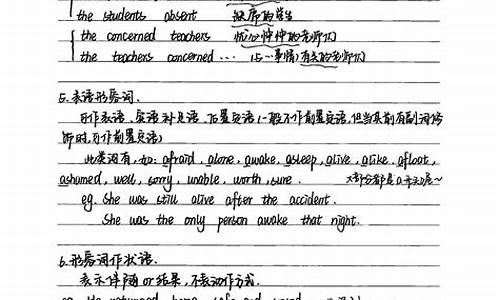 the students absent 缺席的学生
the concerned teachers 忧心忡忡的老师们
the teachers concerned ... (与…事情)有关的老师们
5. 表语形容词.
可作表语、宾语补足语、后置定语(一般不作前置定语,但当其前有副词修
饰时,可作前置定语)
此类词有,如: afraid, alone, awake, asleep, alive, alike, afloat,
ashamed, well, sorry, unable, worth, sure. 大部分都是a开头的~
eg. She was still alive after the accident.
She was the only person awake that night.
6. 形容词作状语.
表示伴随or结果,不表动作方式.
eg. He returned home safe and